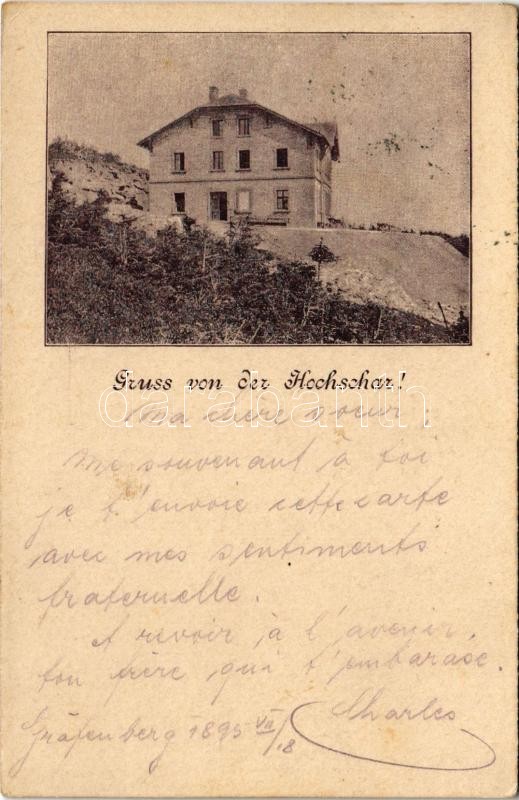 Gruss von der Hochschar!
Ma chère soeur;
Me souvenant à toi
je t'envoie cette carte
avec mes sentiments
fraternelle.
A revoir à l'avenir,
ton frère qui t'embarase.
Charles
Gräfenberg 1895 VII/18
darabanth